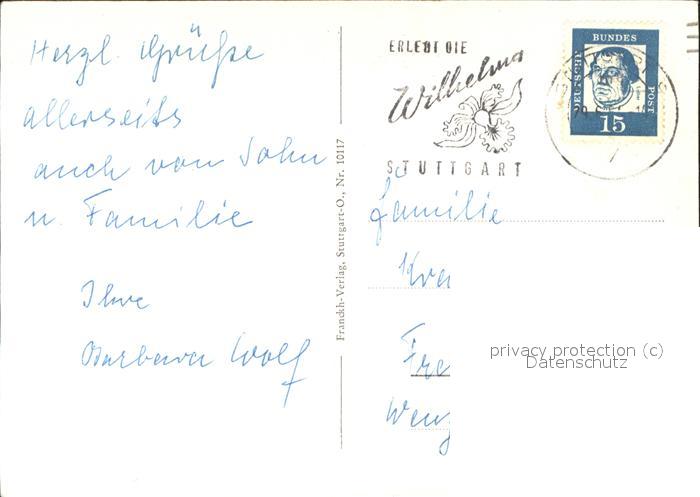 Herzl. Grüße
allerseits
auch von Sohn
u. Familie
Ihre
Barbara Wolf
Franckh-Verlag, Stuttgart-O., Nr. 10117
ERLEBT DIE
Wilhelma
STUTTGART
DEUTSCHE
BUNDES
POST
15
Familie
Kra
Fre
privacy protection (c)
Datenschutz